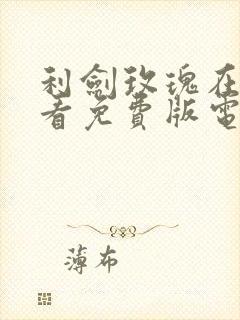 利劍玫瑰在
看免費版電
薄布